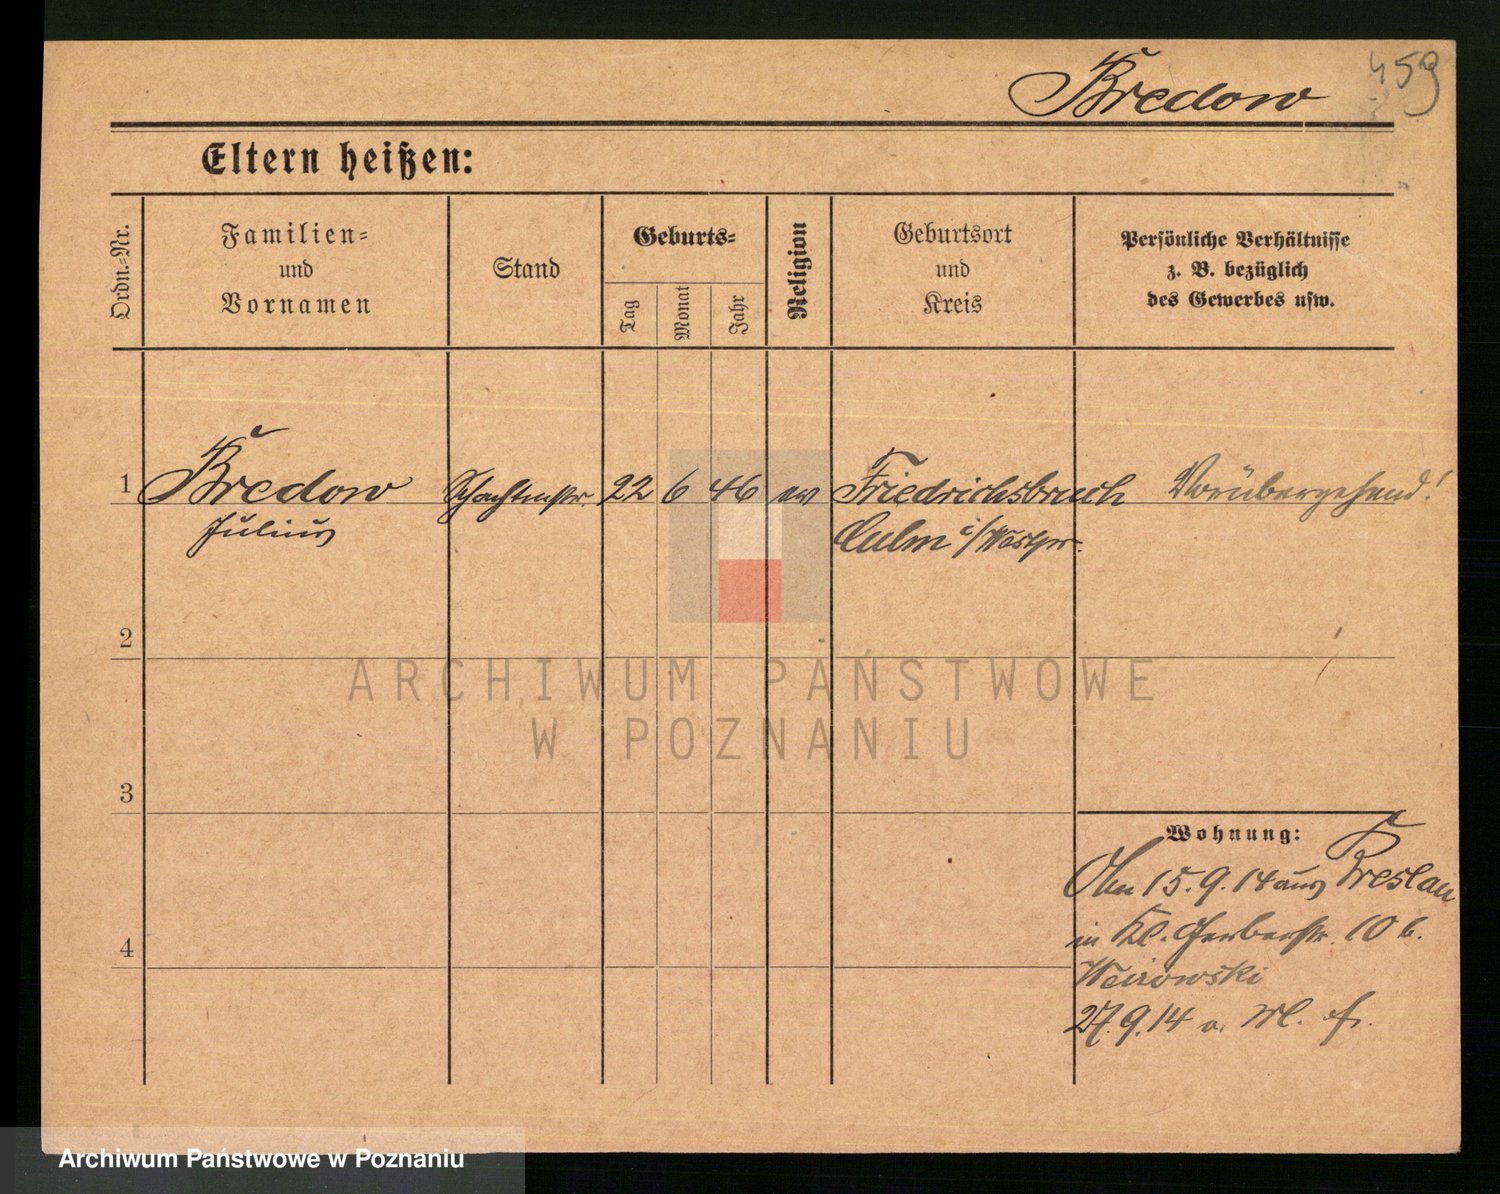 Bredow
459
Eltern heißen:
Ordn.-Nr.
Familien-
und
Vornamen
Stand
Geburts-
Tag
Monat
Jahr
Religion
Geburtsort
und
Kreis
Persönliche Verhältnisse
z. B. bezüglich
des Gewerbes usw.
1 Bredow Schachtmstr. 22 6 46 ev Friedrichsbruch Vorübergehend!
Julius Culm i/Westpr.
2
ARCHIWUM PAŃSTWOWE
W POZNANIU
3
Wohnung:
15.9.14 aus Breslau
in Kl. Gerberstr. 10 b.
4
27.9.14
Archiwum Państwowe w Poznaniu